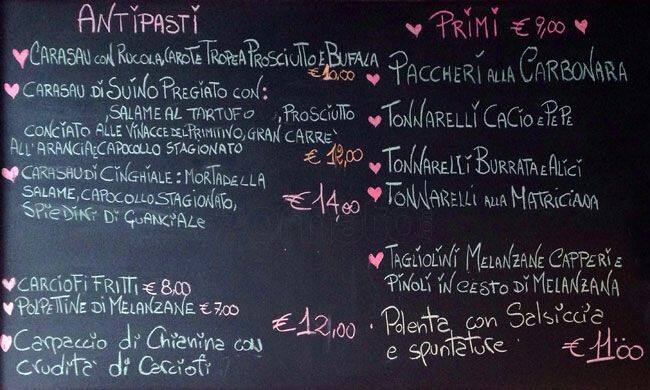 ANTIPASTI
CARASAU CON RUCOLA, CAROTE TROPEA PROSCIUTTO E BUFALA
€ 10,00
CARASAU DI SUINO PREGIATO CON:
, SALAME AL TARTUFO , PROSCIUTTO
CONCIATO ALLE VINACCE DEL PRIMITIVO, GRAN CARRE'
ALL'ARANCIA E CAPOCOLLO STAGIONATO
€ 12,00
CARASAU DI CINGHIALE: MORTADELLA
SALAME, CAPOCOLLO STAGIONATO,
SPIEDINI DI GUANCIALE
€ 14,00
CARCIOFI FRITTI € 8,00
POLPETTINE DI MELANZANE € 7,00
€ 12,00
Carpaccio di Chianina con
crudità di Carciofi
PRIMI € 9,00
PACCHERI ALLA CARBONARA
TONNARELLI CACIO E PEPE
TONNARELLI BURRATA E ALICI
TONNARELLI ALLA MATRICIANA
TAGLIOLINI MELANZANE CAPPERI E
PINOLI IN CESTO DI MELANZANA
· Polenta con Salsiccia
e spuntature · € 11,00